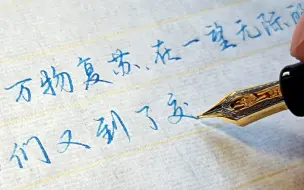 万物复苏、在一望无际的
们又到了交